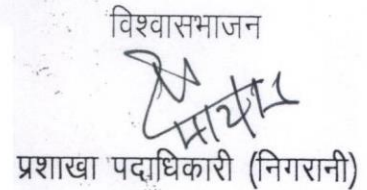 विश्वासभाजन
प्रशाखा पदाधिकारी (निगरानी)